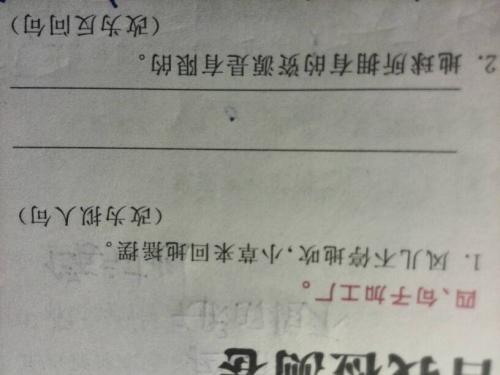 自我检测卷
四、句子加工厂。
1. 风儿不停地吹，小草来回地摇摆。
（改为拟人句）
2. 地球所拥有的资源是有限的。
（改为反问句）